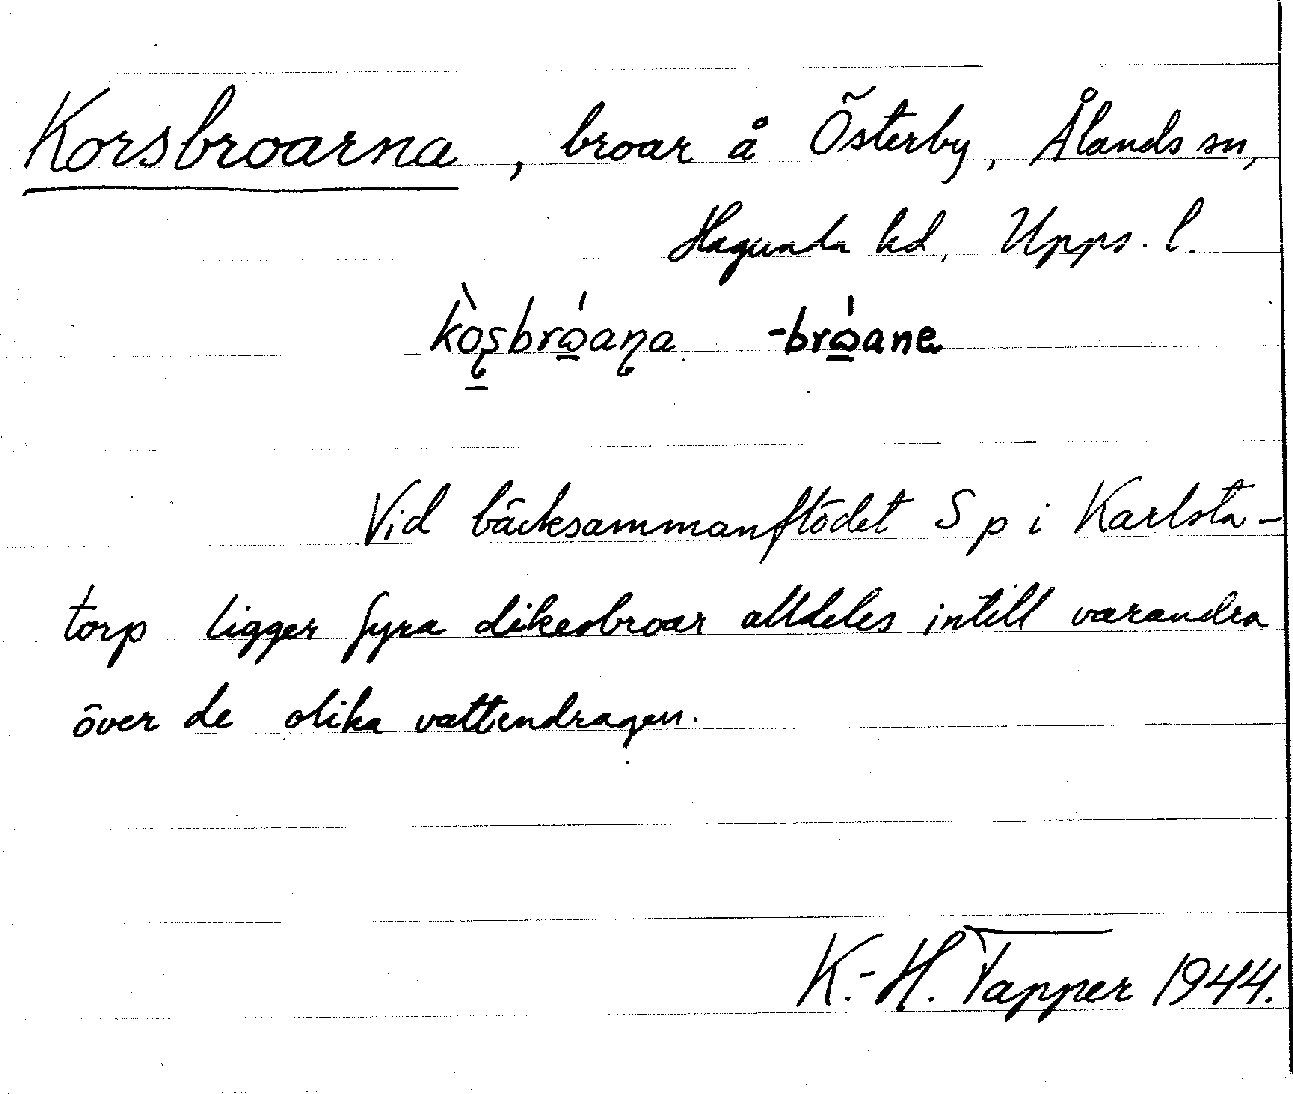 Korsbroarna, broar å Österby, Ålands sn,
Hagunda hd, Upps. l.
kò̱ʂbrώ̱aɳa -brώ̱ane
Vid bäcksammanflödet S p i Karlsta-
torp ligger fyra dikesbroar alldeles intill varandra
över de olika vattendragen.
K.-H. Tapper 1944.